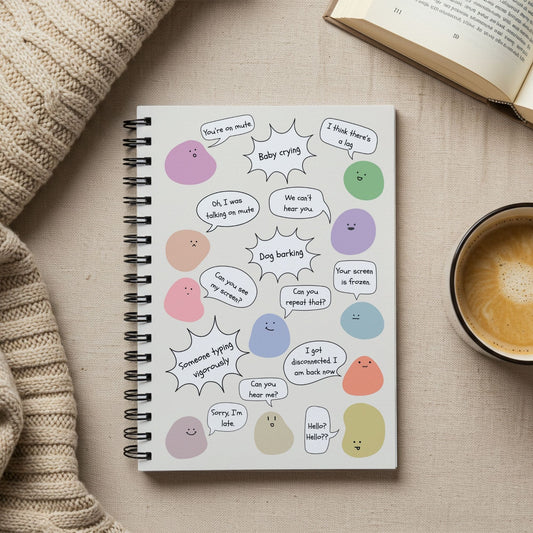 You're on mute
Baby crying
I think there's
a lag
Oh, I was
talking on mute
We can't
hear you.
Dog barking
Can you see
my screen?
Your screen
is frozen.
Can you
repeat that?
Someone typing
vigorously
I got
disconnected. I
am back now
Can you
hear me?
Sorry, I'm
late.
Hello?
Hello??